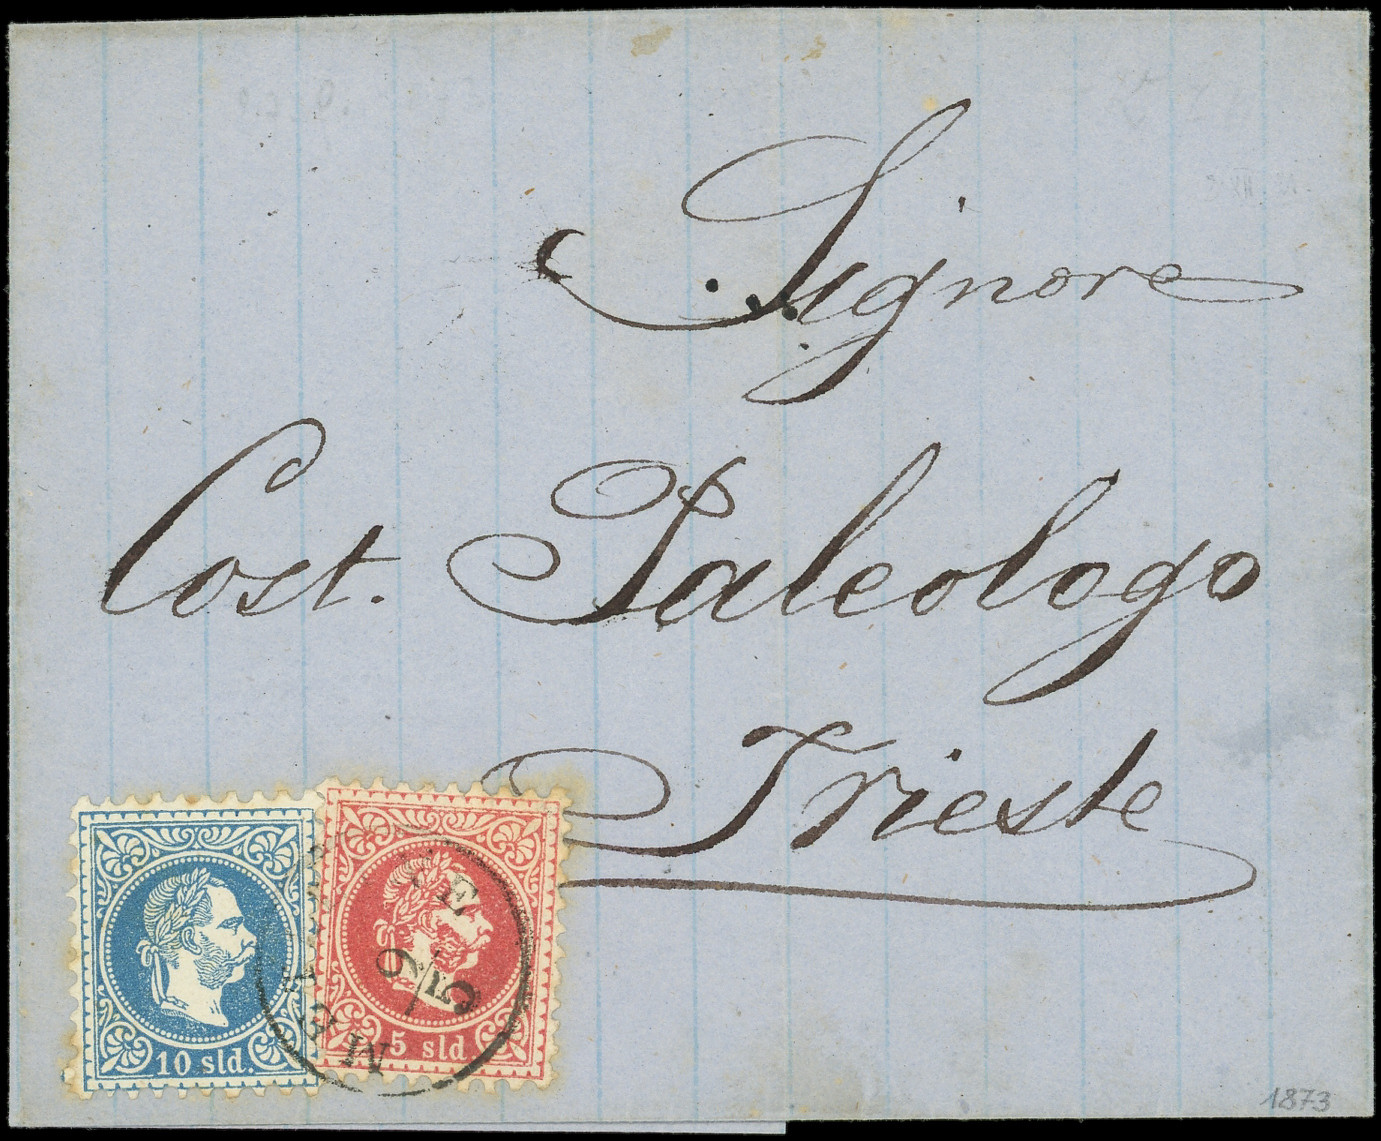 Signore
Cost. Paleologo
Trieste
10 sld.
5 sld.
9/5
1873